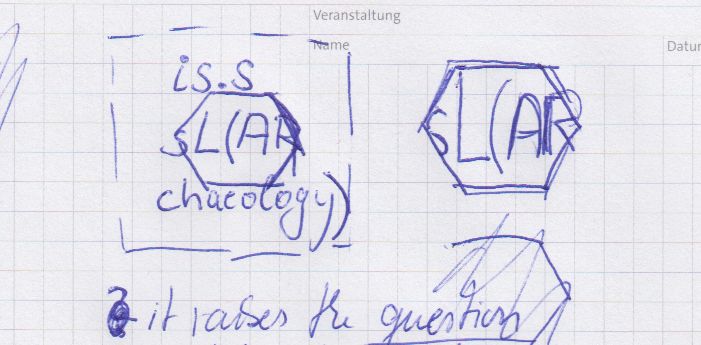 Veranstaltung
Name
Datum
is.s
SL(AR
chaeology)
SL(AR
it raises the question